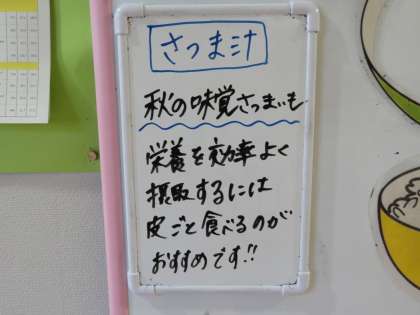 さつま汁
秋の味覚さつまいも
栄養を効率よく
摂取するには
皮ごと食べるのが
おすすめです!!